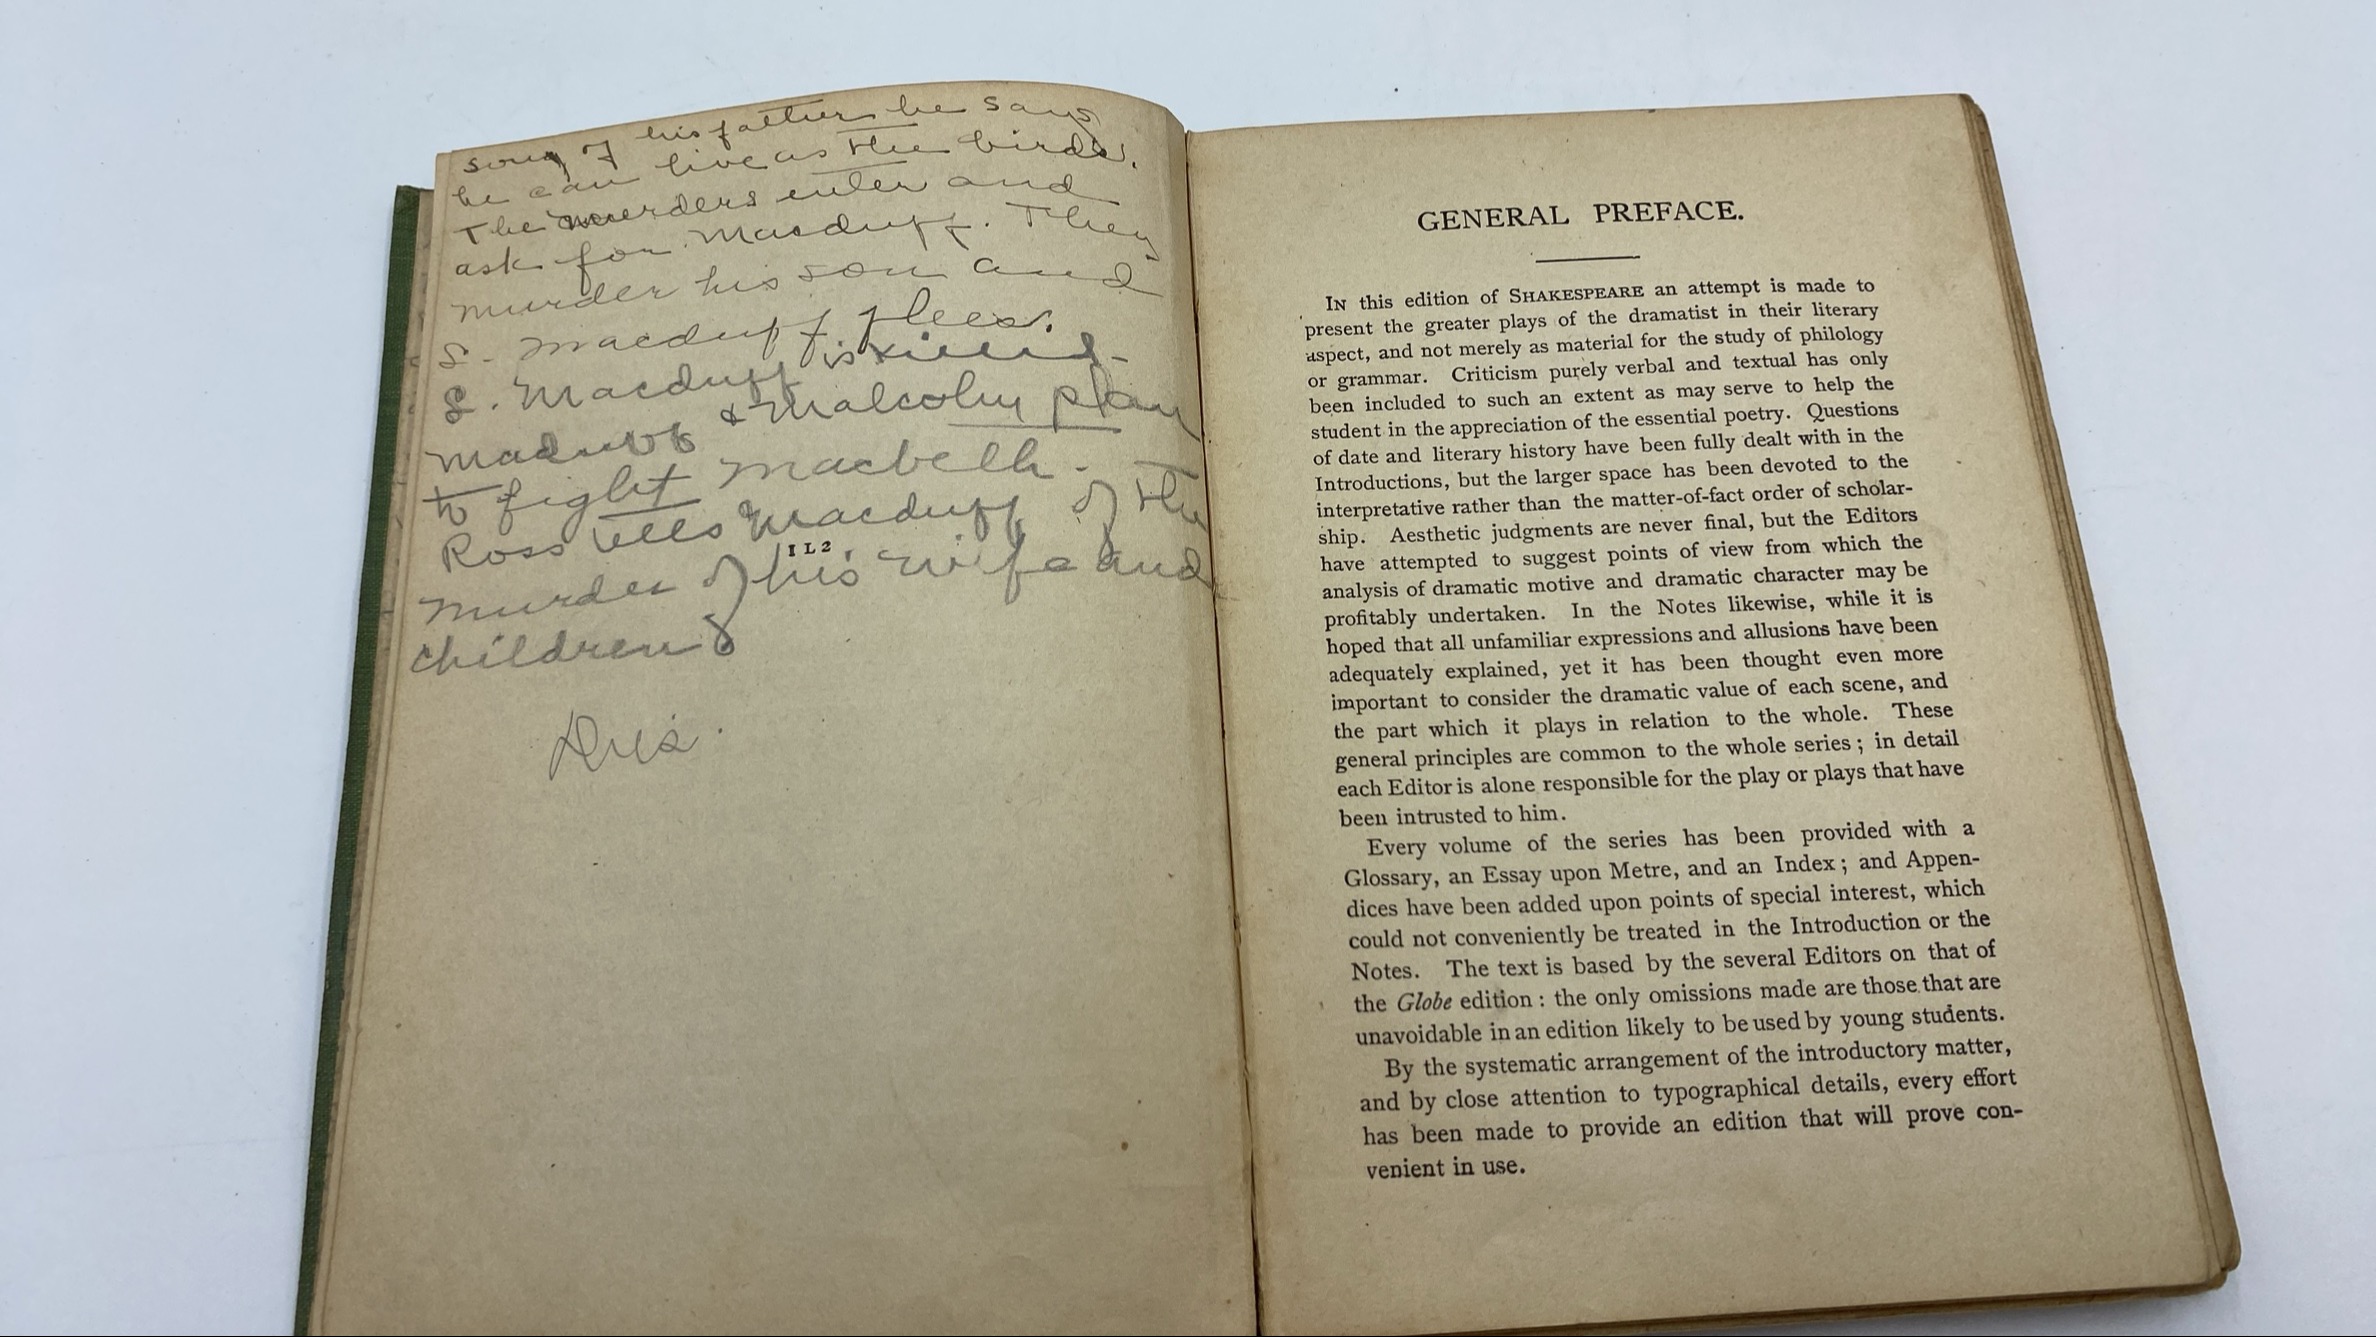 song of his father he says
he can live as the birds.
The murders enter and
ask for Macduff. They
murder his son and
L. Macduff flees.
L. Macduff is killed
Macduff & Malcolm plan
to fight Macbeth.
Ross tells Macduff of the
I L 2
murder of his wife and
children
GENERAL PREFACE.
IN this edition of SHAKESPEARE an attempt is made to
present the greater plays of the dramatist in their literary
aspect, and not merely as material for the study of philology
or grammar. Criticism purely verbal and textual has only
been included to such an extent as may serve to help the
student in the appreciation of the essential poetry. Questions
of date and literary history have been fully dealt with in the
Introductions, but the larger space has been devoted to the
interpretative rather than the matter-of-fact order of scholar-
ship. Aesthetic judgments are never final, but the Editors
have attempted to suggest points of view from which the
analysis of dramatic motive and dramatic character may be
profitably undertaken. In the Notes likewise, while it is
hoped that all unfamiliar expressions and allusions have been
adequately explained, yet it has been thought even more
important to consider the dramatic value of each scene, and
the part which it plays in relation to the whole. These
general principles are common to the whole series; in detail
each Editor is alone responsible for the play or plays that have
been intrusted to him.
Every volume of the series has been provided with a
Glossary, an Essay upon Metre, and an Index; and Appen-
dices have been added upon points of special interest, which
could not conveniently be treated in the Introduction or the
Notes. The text is based by the several Editors on that of
the Globe edition: the only omissions made are those that are
unavoidable in an edition likely to be used by young students.
By the systematic arrangement of the introductory matter,
and by close attention to typographical details, every effort
has been made to provide an edition that will prove con-
venient in use.